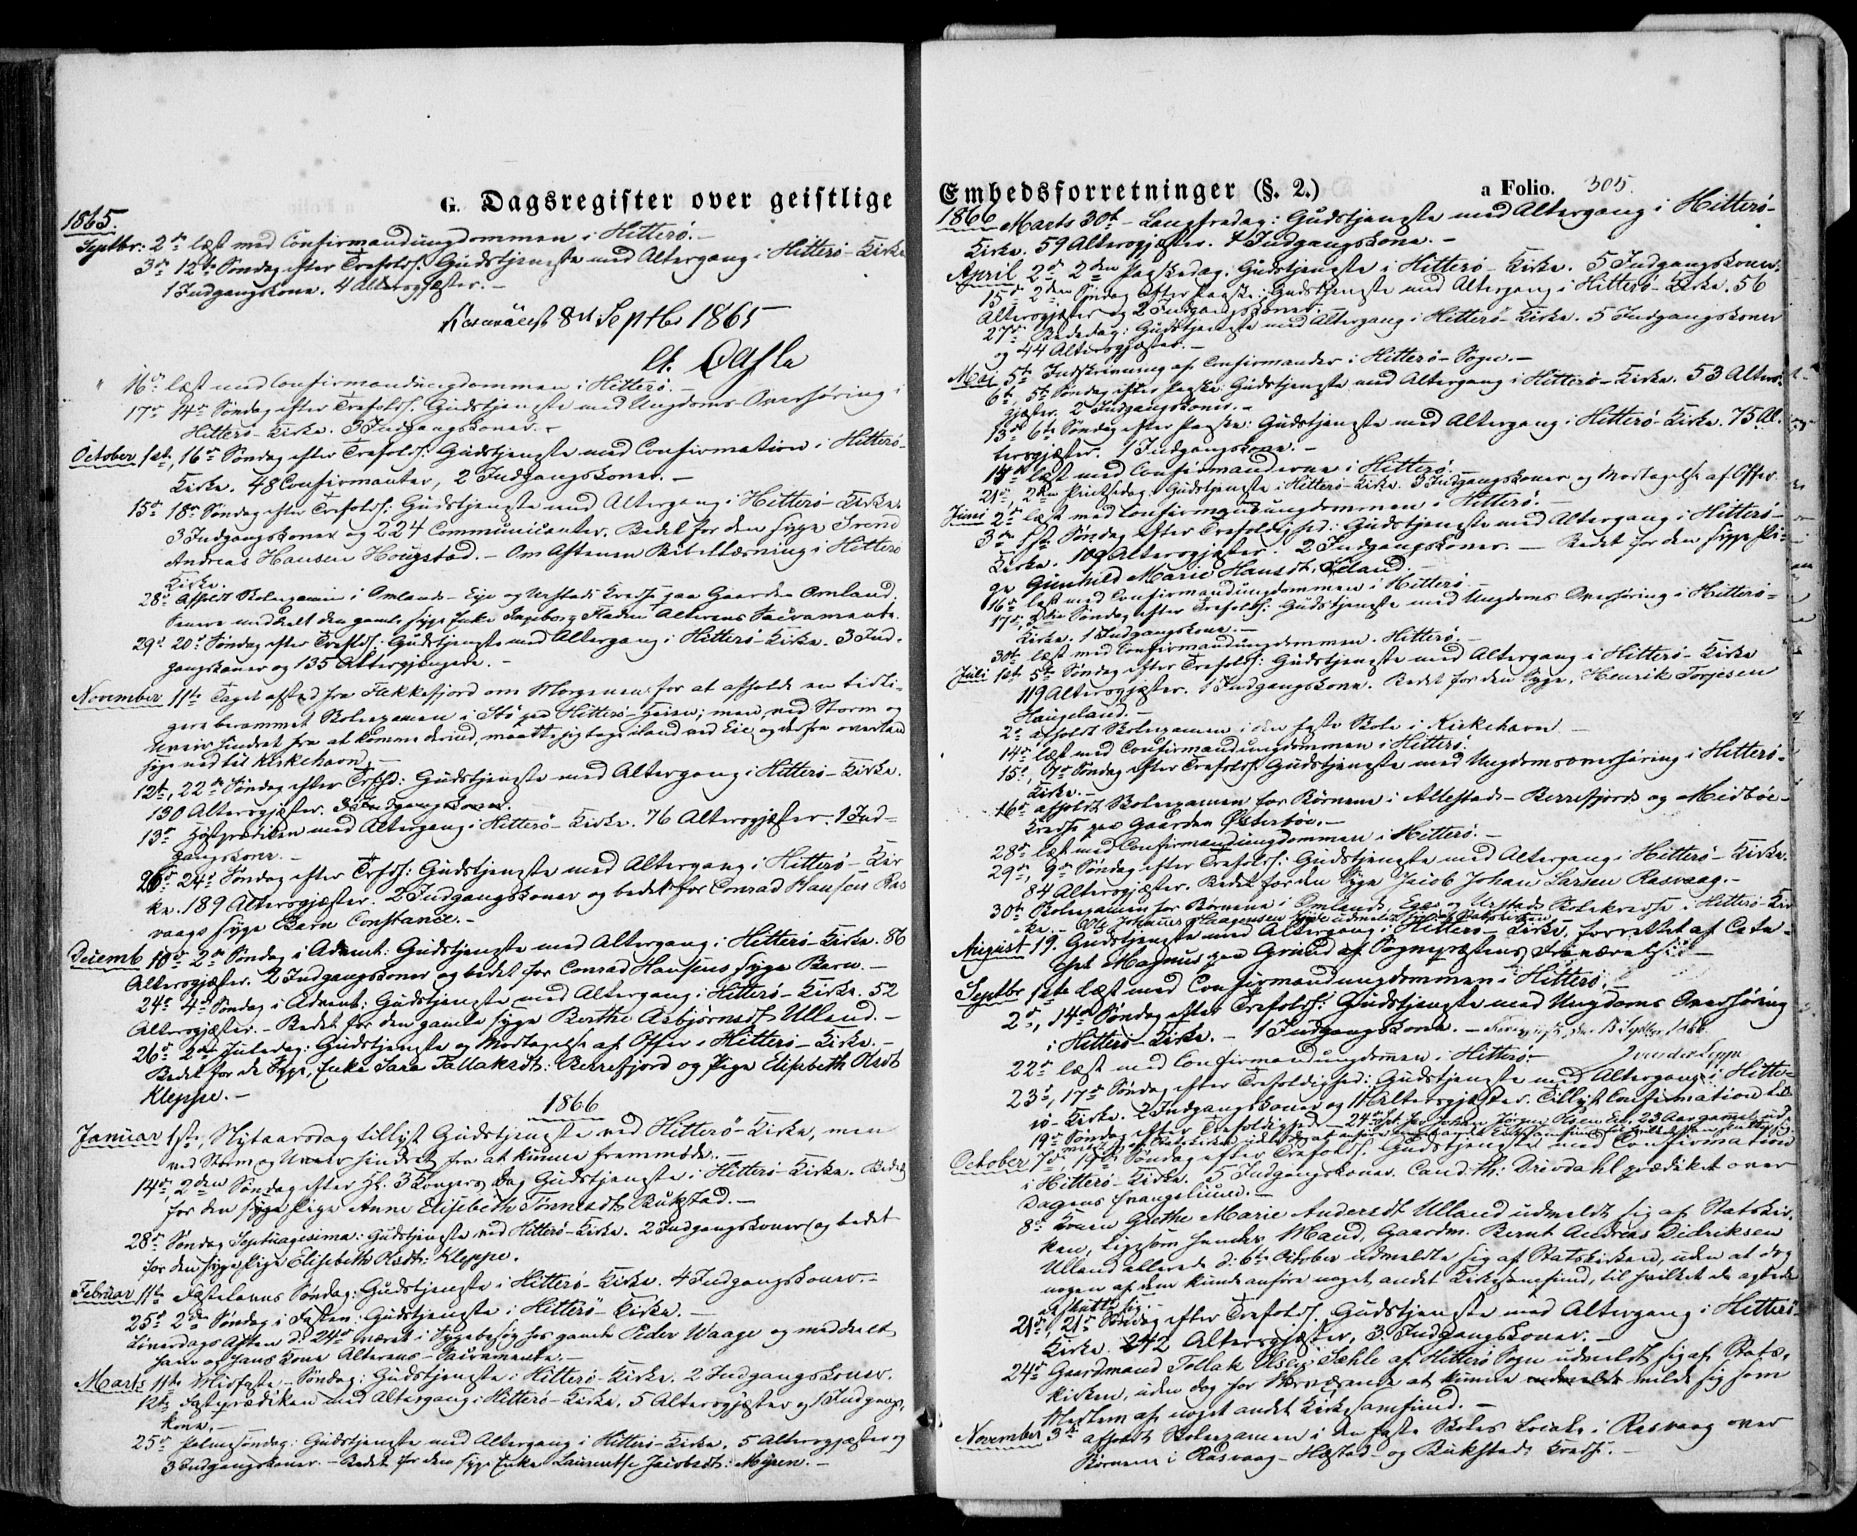 G. Dagsregister over geistlige
1865.
Septbr: 2den læst med Confirmandungdommen i Hitterø. -
3die 12te Søndag efter Trefoldh: Gudstjeneste med Altergang i Hitterø-Kirke
1 Indgangskone. 4 Altergjæster. -
8de Septbr 1865
" 16de læst med Confirmandungdommen i Hitterø. -
17de 14de Søndag efter Trefoldh: Gudstjeneste med Ungdoms-Overhøring i
Hitterø-Kirke. 3 Indgangskoner. -
October 1ste, 16de Søndag efter Trefoldh: Gudstjeneste med Confirmation i Hitterø-
Kirke. 48 Confirmanter, 2 Indgangskoner. -
15de 18de Søndag efter Trefoldh: Gudstjeneste med Altergang i Hitterø-Kirke.
3 Indgangskoner og 224 Communicanter. Bedet for den syge Svend
Andreas Hansen Hougstad. - Om Aftenen Bibellæsning i Hitterø
Kirke.
28de Afholdt Skoleexamen i Omlands- Eje og Urstads Kreds paa Gaarden Omland.
Senere meddelt den gamle syge Enke Ingeborg Alterens Sacramente.
29de 20de Søndag efter Trefoldh: Gudstjeneste med Altergang i Hitterø-Kirke. 3 Ind-
gangskoner og 135 Altergjængere. -
November 11te Taget afsted fra Flekkefjord om Morgenen for at afholde en tidli-
gere berammet Skoleexamen i Stø ved Hitterø-Teisen; men ved Storm og
Uveir hindret fra at komme derud, maatte jeg tage iland ved Eie og derfra overland
hjem til Kirkehavn. -
12te, 22de Søndag efter Trefoldh: Gudstjeneste med Altergang i Hitterø-Kirke.
130 Altergjæster. 3 Indgangskoner.
13de Høstprædiken med Altergang i Hitterø-Kirke. 76 Altergjæster. 1 Ind-
gangskone. -
26de 24de Søndag efter Trefoldh: Gudstjeneste med Altergang i Hitterø-Kir-
ke. 189 Altergjæster. 2 Indgangskoner og bedet for Conrad Hansens Ras-
vaags syge Barn Constance. -
Decemb 10de 2den Søndag i Advent: Gudstjeneste med Altergang i Hitterø-Kirke. 86
Altergjæster. 2 Indgangskoner og bedet for Conrad Hansens syge Barn. -
24de 4de Søndag i Advent: Gudstjeneste med Altergang i Hitterø-Kirke. 52
Altergjæster. - Bedet for den gamle syge Berthe Asbjørnsdt Ulland. -
26de 2den Juledag: Gudstjeneste og Modtagelse af Offer i Hitterø-Kirke. -
Bedet for de syge, Enke Sara Tallaksdt: Berrefjord og Pige Elisebeth Olsdt
Kleppe. -
1866
Januar 1ste, Nytaarsdag tillyst Gudstjeneste ved Hitterø-Kirke, men
ved Storm og Uveir hindret fra at kunne fremmøde. -
14de, 2den Søndag efter Hl. 3 Kongers Dag Gudstjeneste i Hitterø-Kirke. Bedet
for den syge Pige Anne Elisebeth Tønnesdt. Bukstad. -
28de Søndag Septuagesima: Gudstjeneste ved Hitterø-Kirke. 2 Indgangskoner og bedet
for den syge Pige Elisebeth Olsdt: Kleppe.
Februar 11te Fastelavns Søndag: Gudstjeneste i Hitterø-Kirke. 4 Indgangskoner. -
25de 2den Søndag i Fasten: Gudstjeneste i Hitterø-Kirke. -
Løverdags Aften d: 24de været i Sygebesøg hos gamle Peder Waage og meddelt
ham og hans Kone Alterens-Sacramente. -
Marts 11te Midfaste-Søndag: Gudstjeneste i Hitterø-Kirke. 2 Indgangskoner.
12te Fasteprædiken med Altergang i Hitterø-Kirke. 5 Altergjæster og 1 Indgangs-
kone. -
25de Palmesøndag: Gudstjeneste med Altergang i Hitterø-Kirke. 5 Altergjæster og
3 Indgangskoner. - Bedet for den syge Enke Laurentse Jacobsdt: Myren. -
Embedsforretninger (§. 2.)
a Folio. 305.
1866 Marts 30te - Langfredag: Gudstjeneste med Altergang i Hitterø-
Kirke. 59 Altergjæster. 1 Indgangskone. -
April 2den 2den Paaskedag. Gudstjeneste i Hitterø-Kirke. 5 Indgangskoner.
15de 2den Søndag efter Paaske: Gudstjeneste med Altergang i Hitterø-Kirke. 56
Altergjæster og 2 Indgangskoner.
27de Bededag: Gudstjeneste med Altergang i Hitterø-Kirke. 5 Indgangskoner
og 44 Altergjæster. -
Mai 5te Indskrivning af Confirmander i Hitterø-Sogn. -
6te, 5te Søndag efter Paaske: Gudstjeneste med Altergang i Hitterø-Kirke. 53 Alter-
gjæster. 2 Indgangskoner. -
13de 6te Søndag efter Paaske: Gudstjeneste med Altergang i Hitterø-Kirke. 75 Al-
tergjæster. 1 Indgangskone. -
19de læst med Confirmanderne i Hitterø.
21de, 2den Pindsedag. Gudstjeneste i Hitterø-Kirke. 3 Indgangskoner og Modtagelse af Offer.
Juni 2den læst med Confirmandungdommen i Hitterø. -
3die 1ste Søndag efter Trefoldighed: Gudstjeneste med Altergang i Hitterø-
Kirke. 109 Altergjæster. 2 Indgangskoner. - Bedet for den syge Pi-
ge Gunhild Marie Hansdt,
16de læst med Confirmandungdommen i Hitterø. -
17de, 3die Søndag efter Trefoldh: Gudstjeneste med Ungdoms Overhøring i Hitterø-
Kirke. 1 Indgangskone. -
30te læst med Confirmandungdommen. Hitterø. -
Juli 1ste 5te Søndag efter Trefoldh: Gudstjeneste med Altergang i Hitterø-Kirke
119 Altergjæster. 1 Indgangskone. Bedet for den syge, Henrik Torjesen
Haugeland. -
2den afholdt Skoleexamen i den faste Skole i Kirkehavn -
14de læst med Confirmandungdommen i Hitterø.
15de, 7de Søndag efter Trefoldh: Gudstjeneste med Ungdomsoverhøring i Hitterø-
Kirke. -
16de afholdt Skoleexamen for Børnene i Allestad- Berrefjords og Midbøe-
Kredse paa Gaarden Østerbøe. -
28de læst med Confirmandungdommen i Hitterø. -
29de, 9de Søndag efter Trefoldh: Gudstjeneste med Altergang i Hitterø-Kirke.
84 Altergjæster. Bedet for den syge Jacob Johan Larsen Rasvaag. -
30te Skoleexamen for Børnene i Omlands, Eje og Urstads Skolekredse i Hitterø-Kir-
ke. - Johannes Haagensen udmeldt sig af Statskirken
August 19. Gudstjeneste med Altergang i Hitterø-Kirke, forrettet af Cate-
chet Magnus paa Grund af Sognepræstens Fraværelse. -
Septbr 1ste læst med Confirmandungdommen i Hitterø. -
2den, 14de Søndag efter Trefoldh: Gudstjeneste med Ungdoms Overhøring
i Hitterø-Kirke. - 1 Indgangskone. - den 15 Septbr 1866.
22de læst med Confirmandungdommen i Hitterø. -
23de, 17de Søndag efter Trefoldighed: Gudstjeneste med Altergang i Hitter-
ø-Kirke. 2 Indgangskoner og 11 Altergjæster. Tillyst Confirmation til
19de Søndag efter Trefoldighed. - 24de Johan Jørgen Olsen Eie, 23 Aar gammel, ud-
October 7de, 19de Søndag efter Trefoldh: Gudstjeneste med Confirmation
i Hitterø-Kirke. 5 Indgangskoner. Cand. th: Drevdahl prædiket over
Dagens Evangelium. -
8de Konen Grethe Marie Andersdt Ulland udmeldt sig af Statskir-
ken, ligesom hendes Mand, Gaardm. Bernt Andreas Didriksen
Ulland allerede d: 6te October udmeldte sig af Statskirken, uden at dog
nogen af dem kunde anføre noget andet Kirkesamfund, til hvilket de agtede
at slutte sig. -
21de, 21de Søndag efter Trefoldh: Gudstjeneste med Altergang i Hitterø-
Kirke. 242 Altergjæster, 3 Indgangskoner. -
24de Gaardmand Tollak Olsen Sæhle af Hitterø Sogn udmeldt sig af Stats-
kirken, uden dog for Nærværende at kunne melde sig som
Medlem af noget andet Kirkesamfund. -
November 3die afholdt Skoleexamen i den faste Skoles Locale i Rasvaag over
Børnene i Rasvaag- Hæstad- og Bukstads Kreds. -